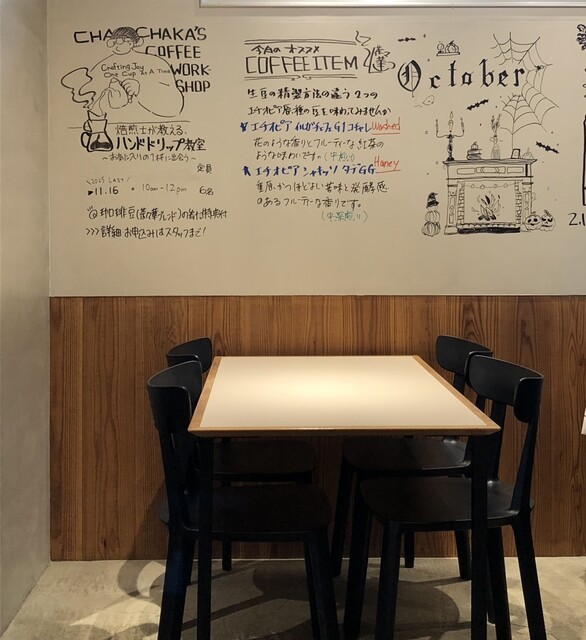 CHA CHAKA'S
COFFEE
WORK-
SHOP
Crafting Joy
One Cup At A Time
焙煎士が教える、
ハンドドリップ教室
〜お気に入りの1杯に出会う〜
定員
2025 LAST!
▶11.16 • 10am-12pm 6名
珈琲豆 のお土産特典付
>>>詳細・お申込みはスタッフまで!
今月のオススメ
COFFEE ITEM
生豆の精製方法の違う2つの
エチオピア原種の豆を味わってみませんか
エチオピア イルガチェフェG1 コチャレ Washed
花のような香りとフルーティーな、紅茶の
ような味わいです。(中煎り)
エチオピア シャキッソ タデGG Honey
重厚かつほどよい苦味と発酵感
のあるフルーティーな香りです。
(中深煎り)
October
2.1